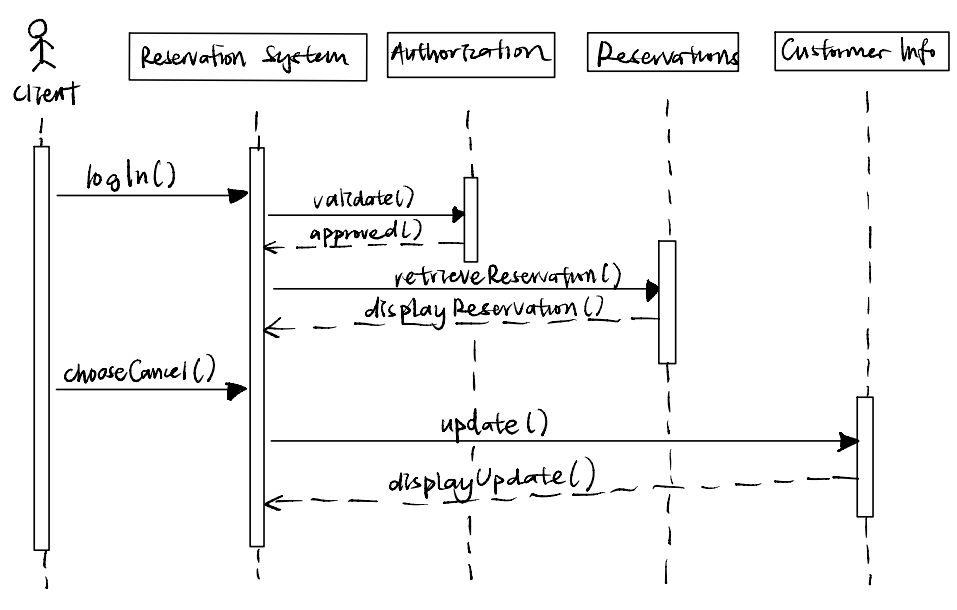 Client
Reservation System
Authorization
Reservations
Customer Info
logIn()
validate()
approved()
retrieveReservation()
displayReservation()
chooseCancel()
update()
displayUpdate()